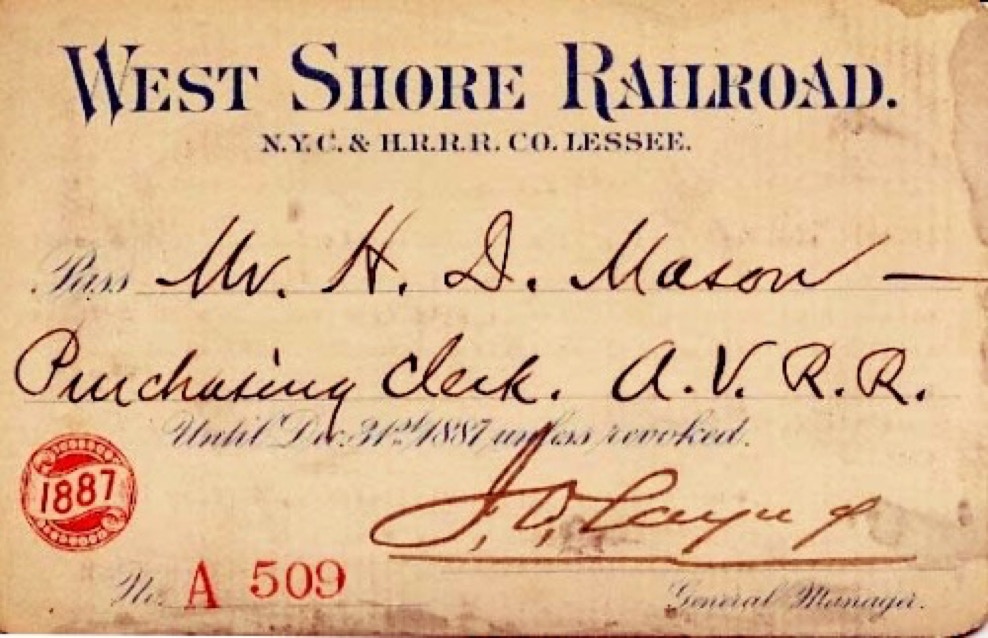 WEST SHORE RAILROAD.
N.Y.C. & H.R.R.R. CO. LESSEE.
Pass Mr. H. D. Mason —
Purchasing Clerk. A.V. R.R.
Until Dec. 31st 1887 unless revoked.
1887
J. D. Layng
No. A 509
General Manager.